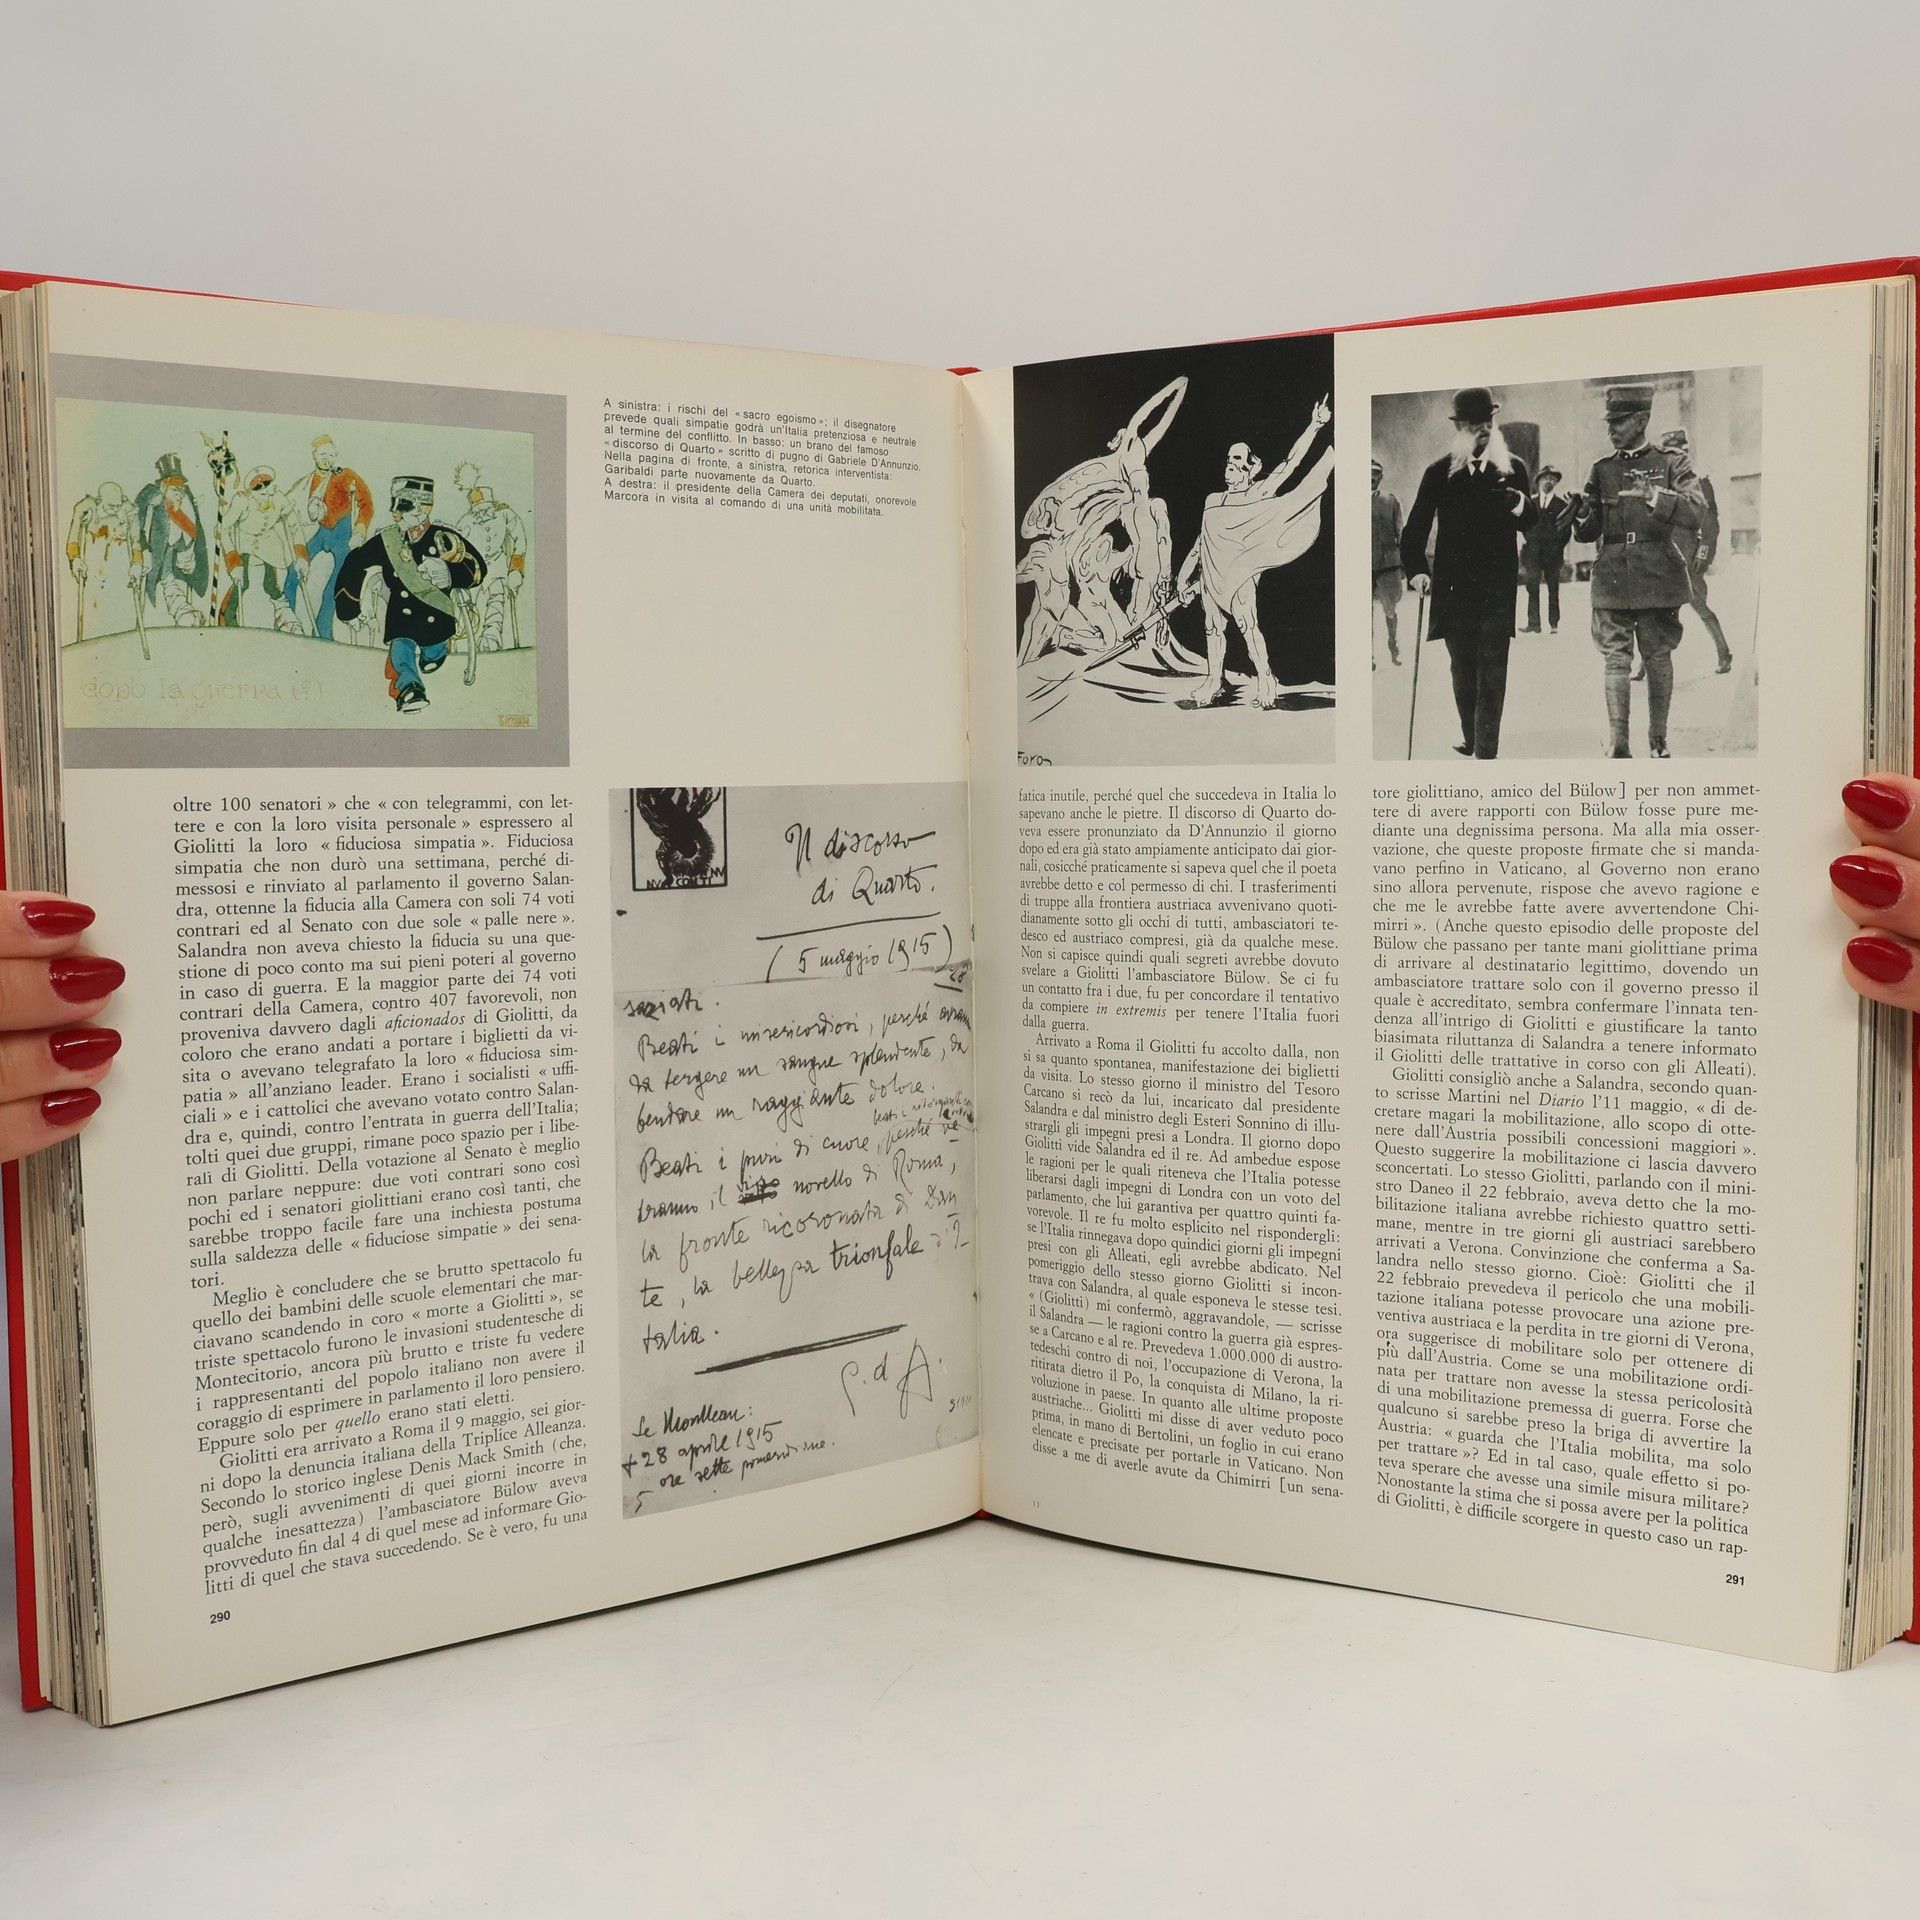 dopo la guerra (?)
A sinistra: i rischi del « sacro egoismo »; il disegnatore
prevede quali simpatie godrà un'Italia pretenziosa e neutrale
al termine del conflitto. In basso: un brano del famoso
« discorso di Quarto » scritto di pugno di Gabriele D'Annunzio.
Nella pagina di fronte, a sinistra, retorica interventista:
Garibaldi parte nuovamente da Quarto.
A destra: il presidente della Camera dei deputati, onorevole
Marcora in visita al comando di una unità mobilitata.
oltre 100 senatori » che « con telegrammi, con let-
tere e con la loro visita personale » espressero al
Giolitti la loro « fiduciosa simpatia ». Fiduciosa
simpatia che non durò una settimana, perché di-
messosi e rinviato al parlamento il governo Salan-
dra, ottenne la fiducia alla Camera con soli 74 voti
contrari ed al Senato con due sole « palle nere ».
Salandra non aveva chiesto la fiducia su una que-
stione di poco conto ma sui pieni poteri al governo
in caso di guerra. E la maggior parte dei 74 voti
contrari della Camera, contro 407 favorevoli, non
proveniva davvero dagli aficionados di Giolitti, da
coloro che erano andati a portare i biglietti da vi-
sita o avevano telegrafato la loro « fiduciosa sim-
patia » all'anziano leader. Erano i socialisti « uffi-
ciali » e i cattolici che avevano votato contro Salan-
dra e, quindi, contro l'entrata in guerra dell'Italia;
tolti quei due gruppi, rimane poco spazio per i libe-
rali di Giolitti. Della votazione al Senato è meglio
non parlare neppure: due voti contrari sono così
pochi ed i senatori giolittiani erano così tanti, che
sarebbe troppo facile fare una inchiesta postuma
sulla saldezza delle « fiduciose simpatie » dei sena-
tori.
Meglio è concludere che se brutto spettacolo fu
quello dei bambini delle scuole elementari che mar-
ciavano scandendo in coro « morte a Giolitti », se
triste spettacolo furono le invasioni studentesche di
Montecitorio, ancora più brutto e triste fu vedere
i rappresentanti del popolo italiano non avere il
coraggio di esprimere in parlamento il loro pensiero.
Eppure solo per quello erano stati eletti.
Giolitti era arrivato a Roma il 9 maggio, sei gior-
ni dopo la denuncia italiana della Triplice Alleanza.
Secondo lo storico inglese Denis Mack Smith (che,
però, sugli avvenimenti di quei giorni incorre in
qualche inesattezza) l'ambasciatore Bülow aveva
provveduto fin dal 4 di quel mese ad informare Gio-
litti di quel che stava succedendo. Se è vero, fu una
290
Il discorso
di Quarto.
( 5 maggio 1915 )
28
saziati.
Beati i misericordiosi, perché avranno
da tergere un sangue splendente, da
bendare un raggiante dolore.
Beati i puri di cuore, perché ve-
dranno il novello di Roma,
la fronte ricoronata di Dan
te, la bellezza trionfale d'I-
talia.
G. d A.
Le Moulleau:
+ 28 aprile 1915
ore sette pomeridiane.
Foron
fatica inutile, perché quel che succedeva in Italia lo
sapevano anche le pietre. Il discorso di Quarto do-
veva essere pronunziato da D'Annunzio il giorno
dopo ed era già stato ampiamente anticipato dai gior-
nali, cosicché praticamente si sapeva quel che il poeta
avrebbe detto e col permesso di chi. I trasferimenti
di truppe alla frontiera austriaca avvenivano quoti-
dianamente sotto gli occhi di tutti, ambasciatori te-
desco ed austriaco compresi, già da qualche mese.
Non si capisce quindi quali segreti avrebbe dovuto
svelare a Giolitti l'ambasciatore Bülow. Se ci fu
un contatto fra i due, fu per concordare il tentativo
da compiere in extremis per tenere l'Italia fuori
dalla guerra.
Arrivato a Roma il Giolitti fu accolto dalla, non
si sa quanto spontanea, manifestazione dei biglietti
da visita. Lo stesso giorno il ministro del Tesoro
Carcano si recò da lui, incaricato dal presidente
Salandra e dal ministro degli Esteri Sonnino di illu-
strargli gli impegni presi a Londra. Il giorno dopo
Giolitti vide Salandra ed il re. Ad ambedue espose
le ragioni per le quali riteneva che l'Italia potesse
liberarsi dagli impegni di Londra con un voto del
parlamento, che lui garantiva per quattro quinti fa-
vorevole. Il re fu molto esplicito nel rispondergli:
se l'Italia rinnegava dopo quindici giorni gli impegni
presi con gli Alleati, egli avrebbe abdicato. Nel
pomeriggio dello stesso giorno Giolitti si incon-
trava con Salandra, al quale esponeva le stesse tesi.
« (Giolitti) mi confermò, aggravandole, — scrisse
il Salandra — le ragioni contro la guerra già espres-
se a Carcano e al re. Prevedeva 1.000.000 di austro-
tedeschi contro di noi, l'occupazione di Verona, la
ritirata dietro il Po, la conquista di Milano, la ri-
voluzione in paese. In quanto alle ultime proposte
austriache... Giolitti mi disse di aver veduto poco
prima, in mano di Bertolini, un foglio in cui erano
elencate e precisate per portarle in Vaticano. Non
disse a me di averle avute da Chimirri [un sena-
tore giolittiano, amico del Bülow] per non ammet-
tere di avere rapporti con Bülow fosse pure me-
diante una degnissima persona. Ma alla mia osser-
vazione, che queste proposte firmate che si manda-
vano perfino in Vaticano, al Governo non erano
sino allora pervenute, rispose che avevo ragione e
che me le avrebbe fatte avere avvertendone Chi-
mirri ». (Anche questo episodio delle proposte del
Bülow che passano per tante mani giolittiane prima
di arrivare al destinatario legittimo, dovendo un
ambasciatore trattare solo con il governo presso il
quale è accreditato, sembra confermare l'innata ten-
denza all'intrigo di Giolitti e giustificare la tanto
biasimata riluttanza di Salandra a tenere informato
il Giolitti delle trattative in corso con gli Alleati).
Giolitti consigliò anche a Salandra, secondo quan-
to scrisse Martini nel Diario l'11 maggio, « di de-
cretare magari la mobilitazione, allo scopo di otte-
nere dall'Austria possibili concessioni maggiori ».
Questo suggerire la mobilitazione ci lascia davvero
sconcertati. Lo stesso Giolitti, parlando con il mini-
stro Daneo il 22 febbraio, aveva detto che la mo-
bilitazione italiana avrebbe richiesto quattro setti-
mane, mentre in tre giorni gli austriaci sarebbero
arrivati a Verona. Convinzione che conferma a Sa-
landra nello stesso giorno. Cioè: Giolitti che il
22 febbraio prevedeva il pericolo che una mobili-
tazione italiana potesse provocare una azione pre-
ventiva austriaca e la perdita in tre giorni di Verona,
ora suggerisce di mobilitare solo per ottenere di
più dall'Austria. Come se una mobilitazione ordi-
nata per trattare non avesse la stessa pericolosità
di una mobilitazione premessa di guerra. Forse che
qualcuno si sarebbe preso la briga di avvertire la
Austria: « guarda che l'Italia mobilita, ma solo
per trattare »? Ed in tal caso, quale effetto si po-
teva sperare che avesse una simile misura militare?
Nonostante la stima che si possa avere per la politica
di Giolitti, è difficile scorgere in questo caso un rap-
291